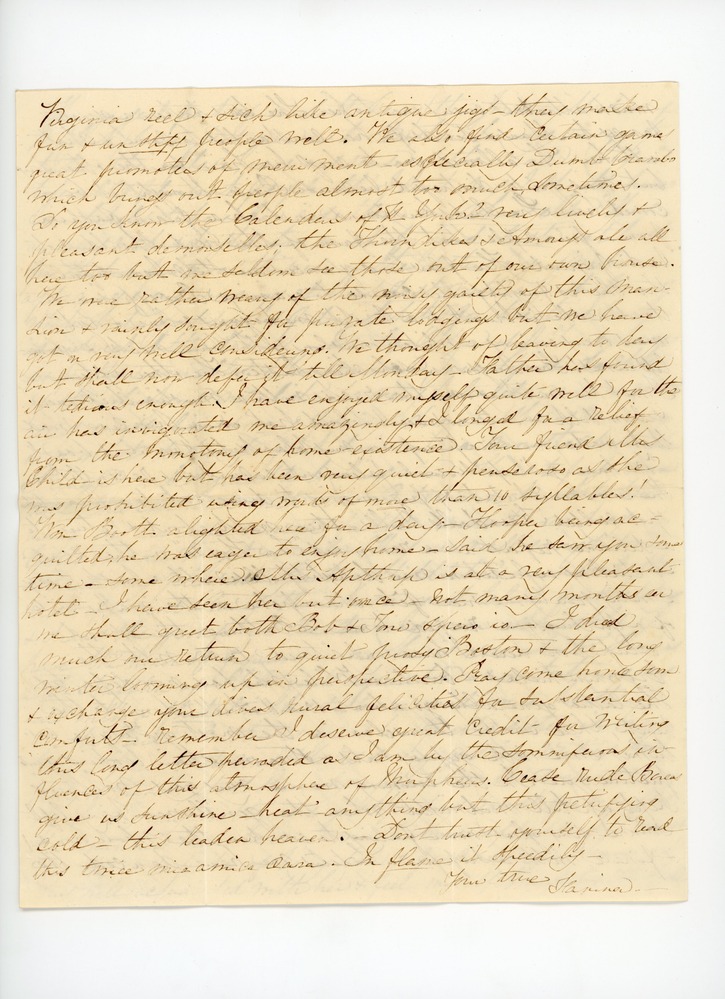 Virginia reel & sich like antique jigs – they make
fun & unstiff people well. We also find certain games
great promoters of merriment – especially Dumb Crambo
which brings out people almost too much, sometimes.
Do you know the Calendars of very lively &
pleasant demoiselles. the Thorndikes & Amorys are all
here too but we seldom see those out of our own house.
We are rather weary of the noisy gaiety of this man-
sion & vainly sought for private lodgings but we have
got on very well considering. We thought of leaving to day
but shall now defer it till Monday – Father has found
it tedious enough. I have enjoyed myself quite well for the
air has invigorated me amazingly & I longed for a relief
from the monotony of home-existence. Your friend Miss
Child is here but has been very quiet & penseroso as she
was prohibited using words of more than 10 syllables!
Wm Boott alighted here for a day – Hooper being ac-
quitted he was eager to enjoy home – said he saw you some
time – some where. Mrs Apthorp is at a very pleasant
hotel – I have seen her but once – Not many months ere
we shall greet both Bob & Tom I dread
much our return to quiet Boston & the long
winter looming up in perspective. Pray come home soon
& exchange your divers rural felicities for substantial
comforts – Remember I deserve great credit for writing
this long letter pervaded as I am by the somniferous in-
fluences of this atmosphere of Morpheus. Cease rude Boreas
give us sunshine – heat – anything but this petrifying
cold – this leaden heaven. – Dont trust yourself to read
this twice mia amica cara – In flame it speedily –
Your true